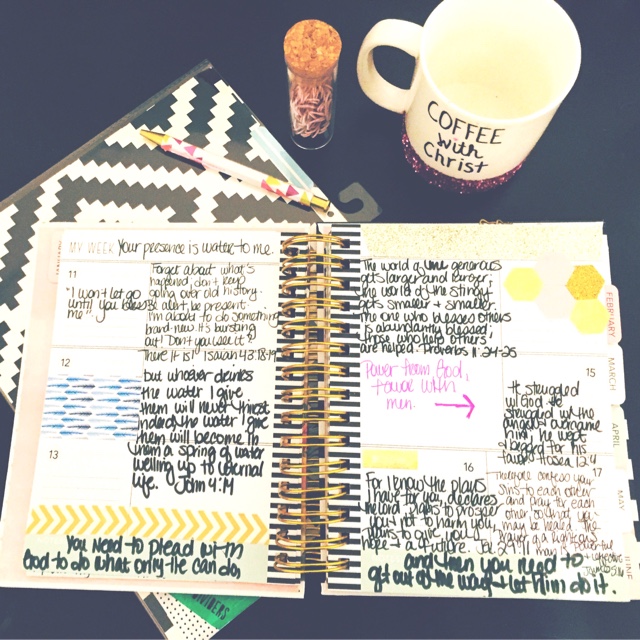 COFFEE
with
Christ
MY WEEK Your presence is water to me.
11
"I won't let go
until you bless
me"
Forget about what's
happened; don't keep
going over old history.
Be alert, be present.
I'm about to do something
brand-new. It's bursting
out! Don't you see it?
There it is!! Isaiah 43:18-19
12
but whoever drinks
the water I give
them will never thirst
indeed, the water I give
them will become in
them a spring of water
welling up to eternal
life. John 4:14
13
You need to plead with
God to do what only He can do,
The world of the generous
gets larger and larger;
the world of the stingy
gets smaller + smaller.
The one who blesses others
is abundantly blessed;
those who help others
are helped. Proverbs 11:24-25
Power from God,
favor with
men.
15
He struggled
w/ God. He
struggled w/ the
angel & overcame
him; he wept
& begged for his
favor. Hosea 12:4
16
For I know the plans
I have for you, declares
the Lord, plans to prosper
you + not to harm you,
plans to give you
hope + a future. Jer. 29:11
17
Therefore confess your
sins to each other
and pray for each
other so that you
may be healed. The
prayer of a righteous
man is powerful
James 5:16
and then you need to
get out of the way + let him do it.
FEBRUARY
MARCH
APRIL
MAY
JUNE
DIVIDERS